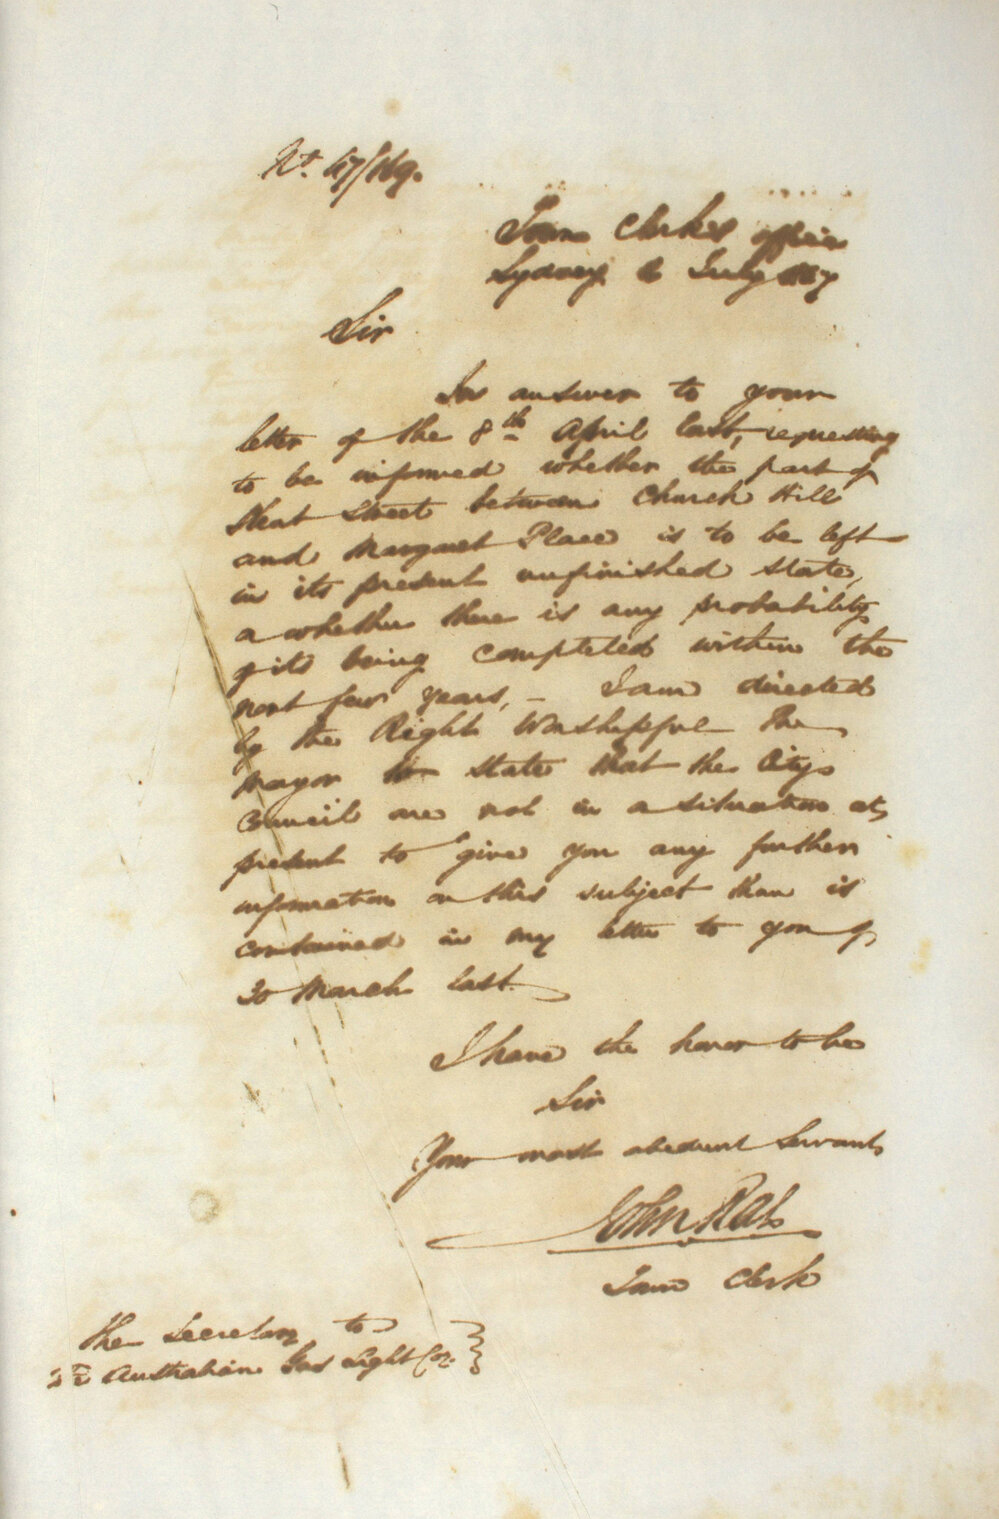 47/169.
Town Clerk's office
Sydney July 1847
Sir
In answer to your
letter of the 8th April last, requesting
to be informed whether the part of
Kent Street between Church Hill
and Margaret Place is to be left
in its present unfinished state,
or whether there is any probability
of its being completed within the
next few years, – I am directed
by the Right Worshipful The
Mayor to state that the City
Council are not in a situation at
present to give you any further
information on this subject than is
contained in my letter to you of
30 March last.
I have the honor to be
Sir
Your most obedient Servant
John Rae
Town Clerk
The Secretary to
Australian Gas Light Coy.